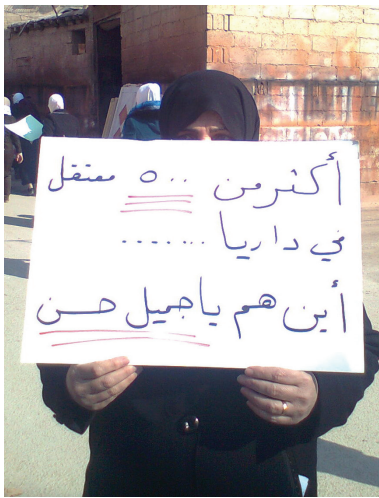 أكثر من ٥٠٠ معتقل
في داريا .......
أين هم يا جميل حسن